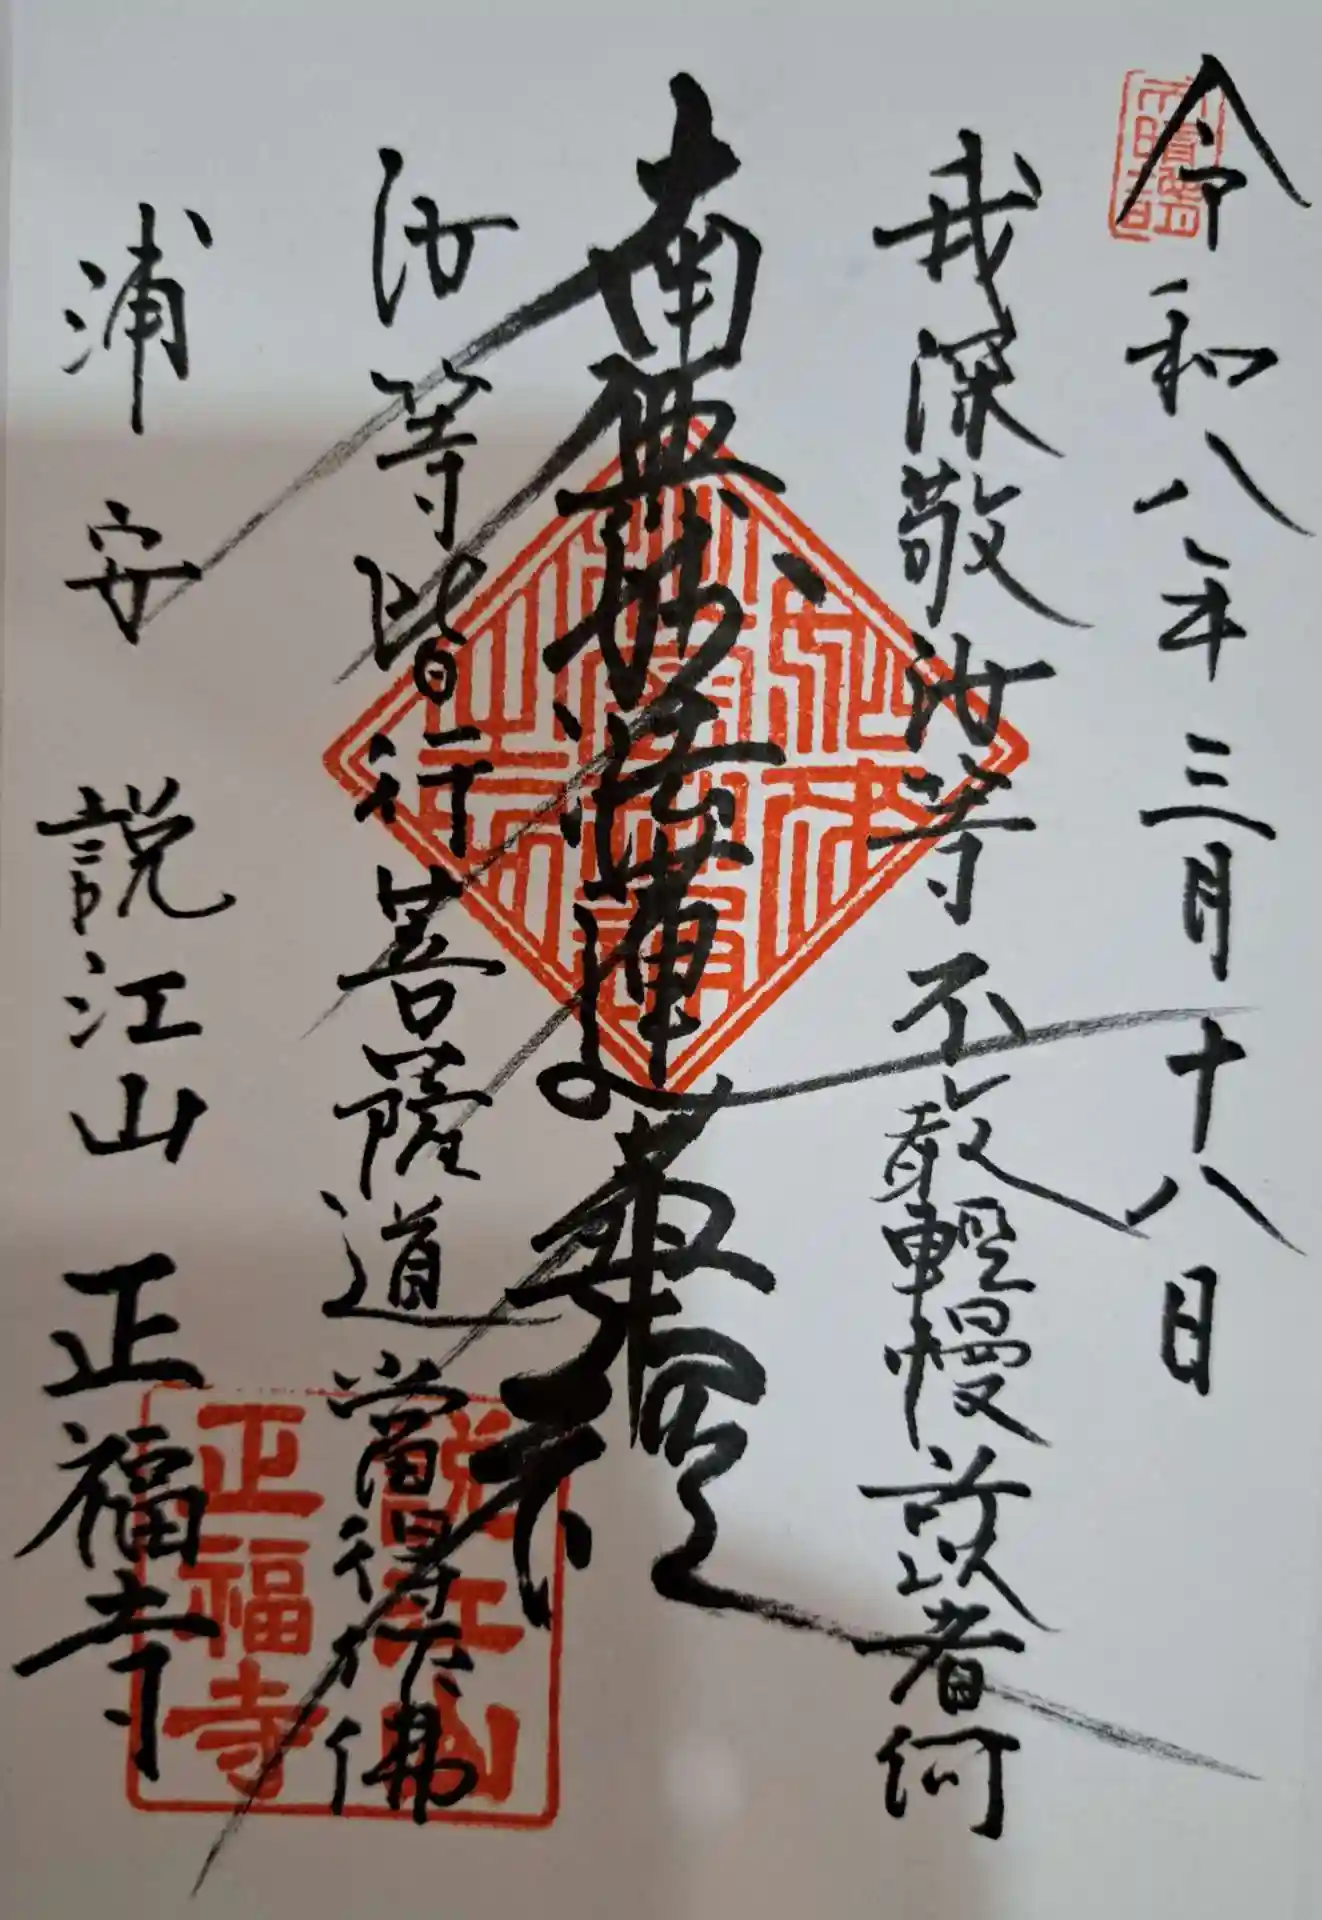 令和八年三月十八日
我深敬汝等不敢輕慢所以者何
南無妙法蓮華経
汝等皆行菩薩道當得作佛
浦安 説江山 正福寺
説江山
正福寺